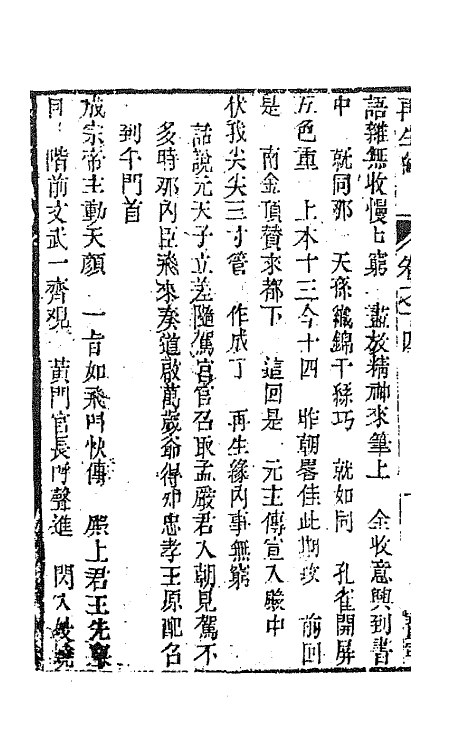 再生緣 卷十四
語雜無收慢占窮 盡放精神來筆上 全收意興到書
中 就同那 天孫織錦千絲巧 就如同 孔雀開屏
五色重 上本十三今十四 昨朝畧佳此期攻 前回
是 南金頂贊來都下 這回是 元主傳宣入殿中
伏我尖尖三寸管 作成了 再生緣內事無窮
話說元天子立差隨駕官官召取孟嚴君入朝見駕不
多時那內臣飛來奏道啟萬歲爺得知忠孝王原配名
到午門首
成宗帝主動天顏 一旨如飛門快傳 殿上君王先
階前文武一齊觀 黃門官長聲進 閃入